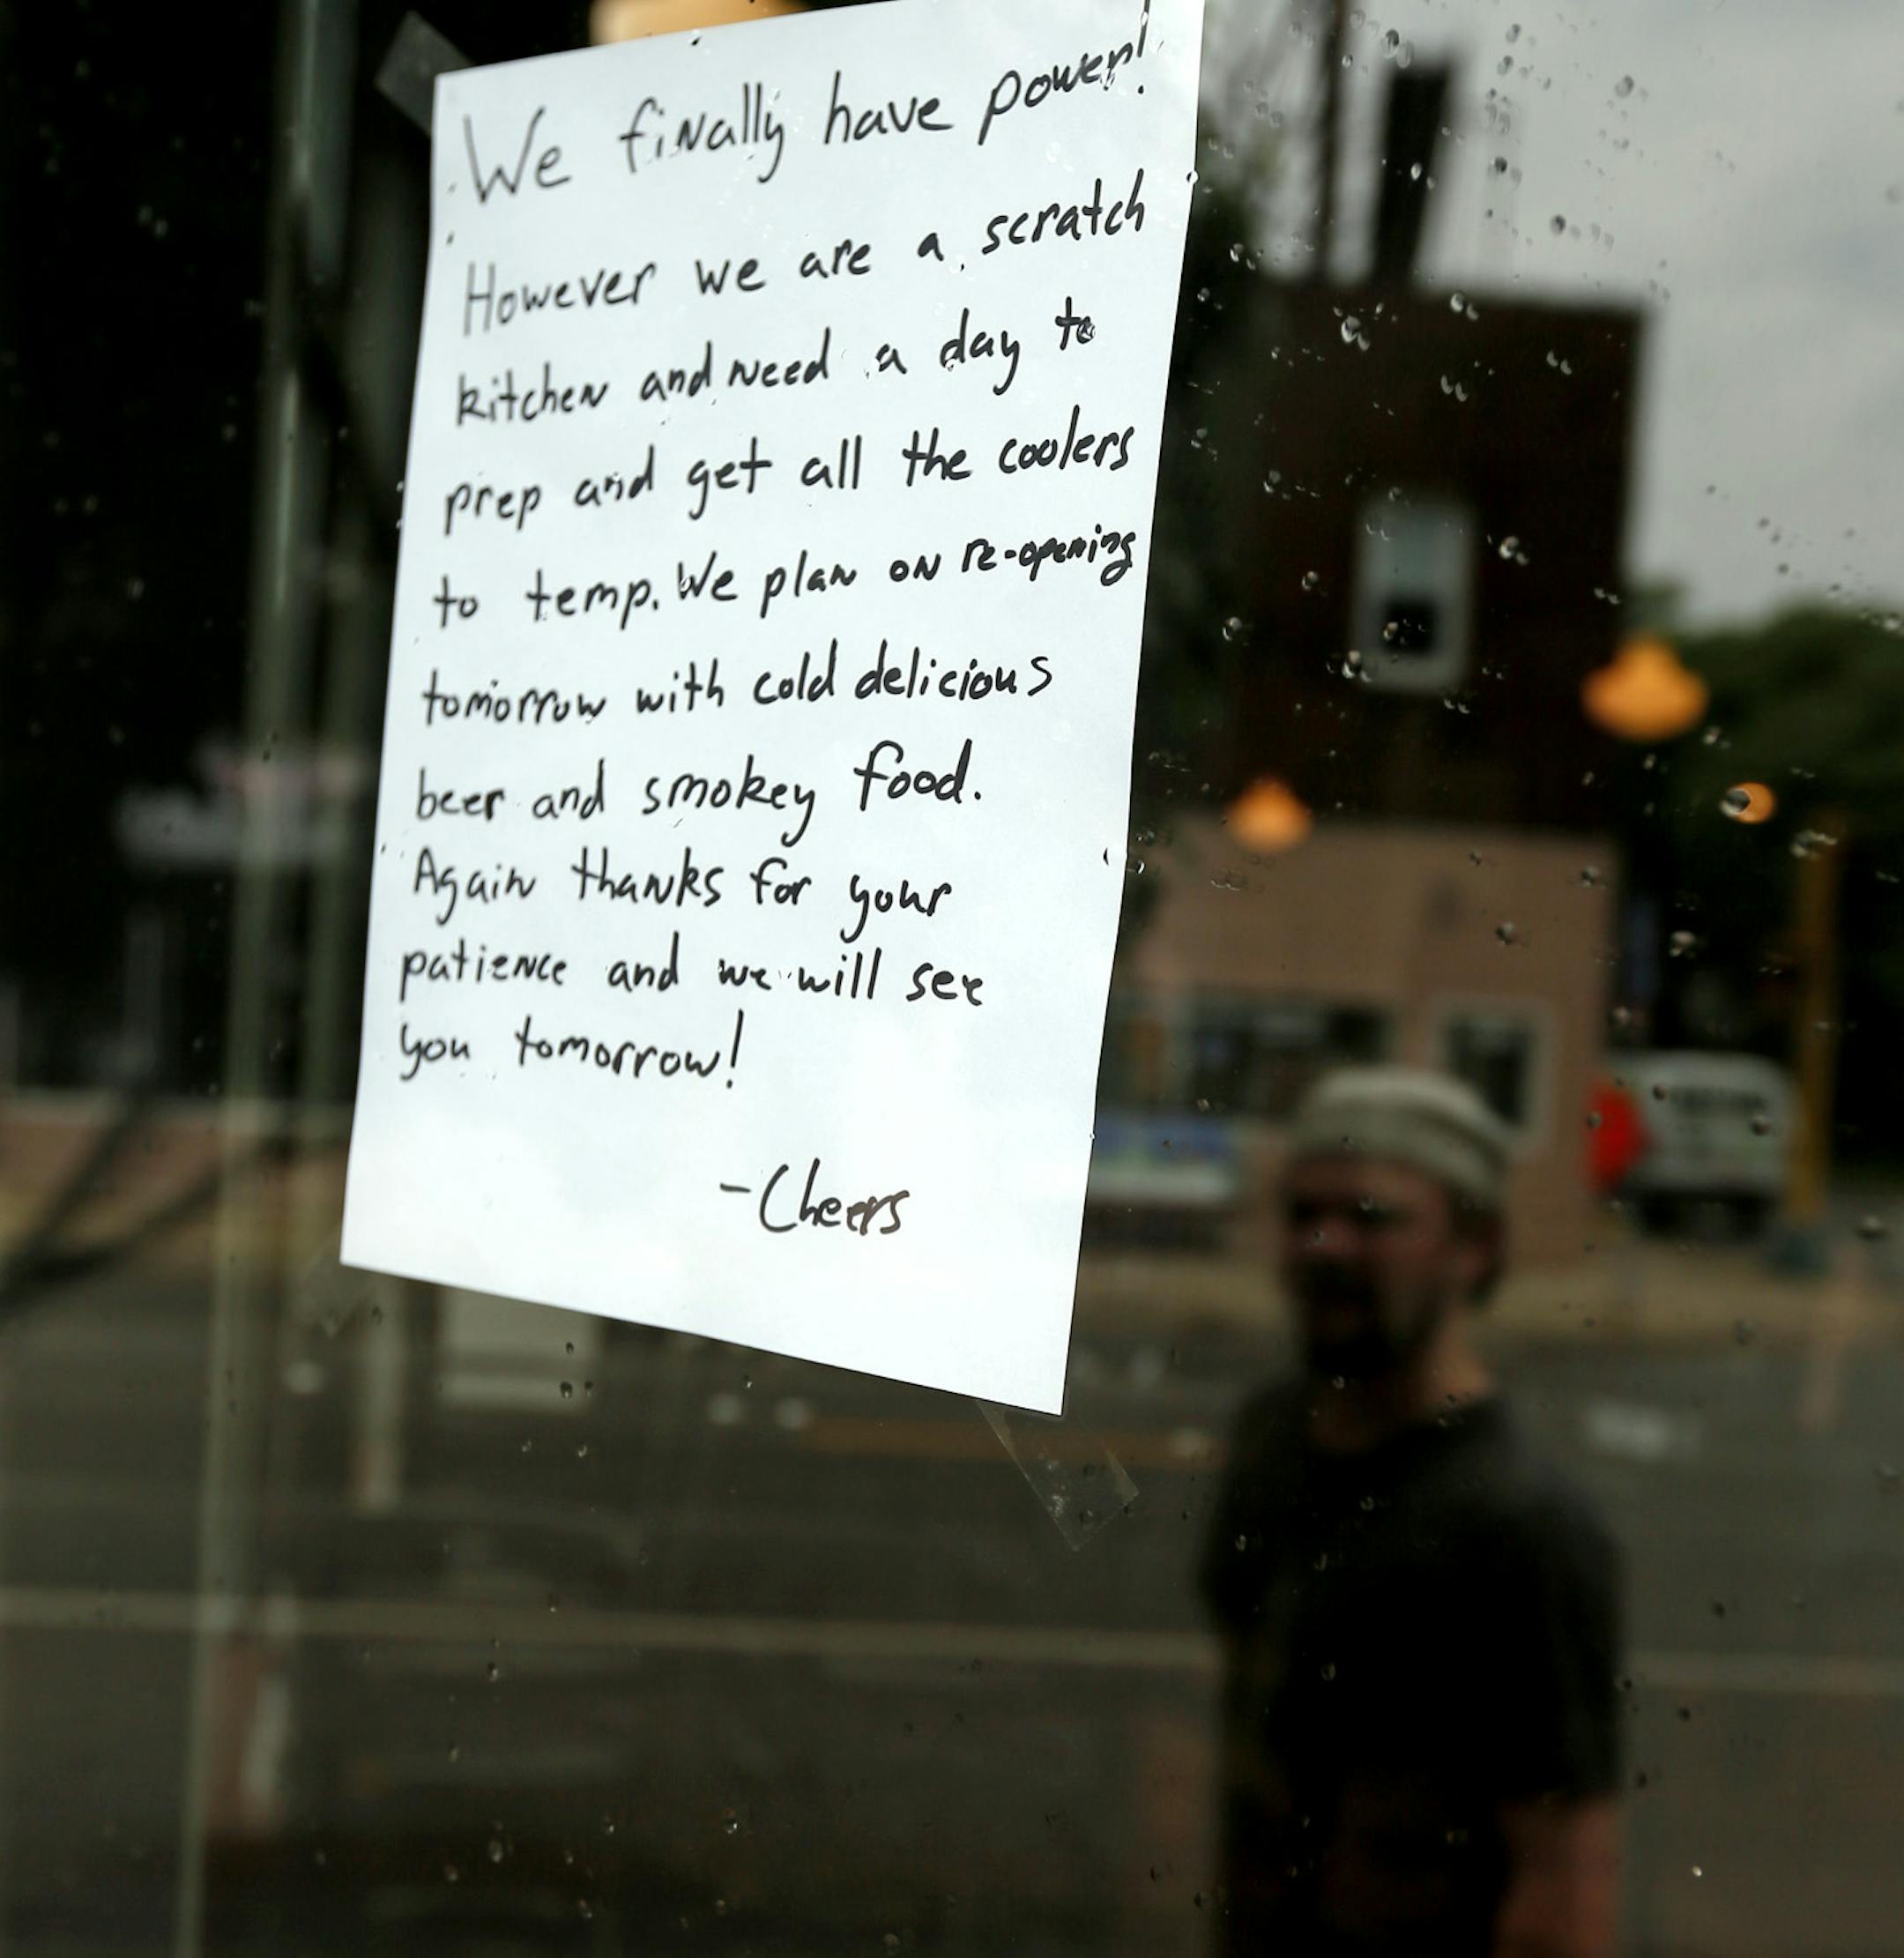 We finally have power!
However we are a scratch
kitchen and need a day to
prep and get all the coolers
to temp. We plan on re-opening
tomorrow with cold delicious
beer and smokey food.
Again thanks for your
patience and we will see
you tomorrow!
-Cheers